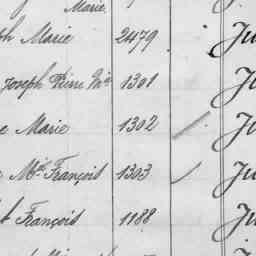 Marie
ph Marie 2479 Ju
Joseph Pierre Mie 1301 Ju
e Marie 1302 Ju
Mie François 1303 Ju
t François 1188 Ju